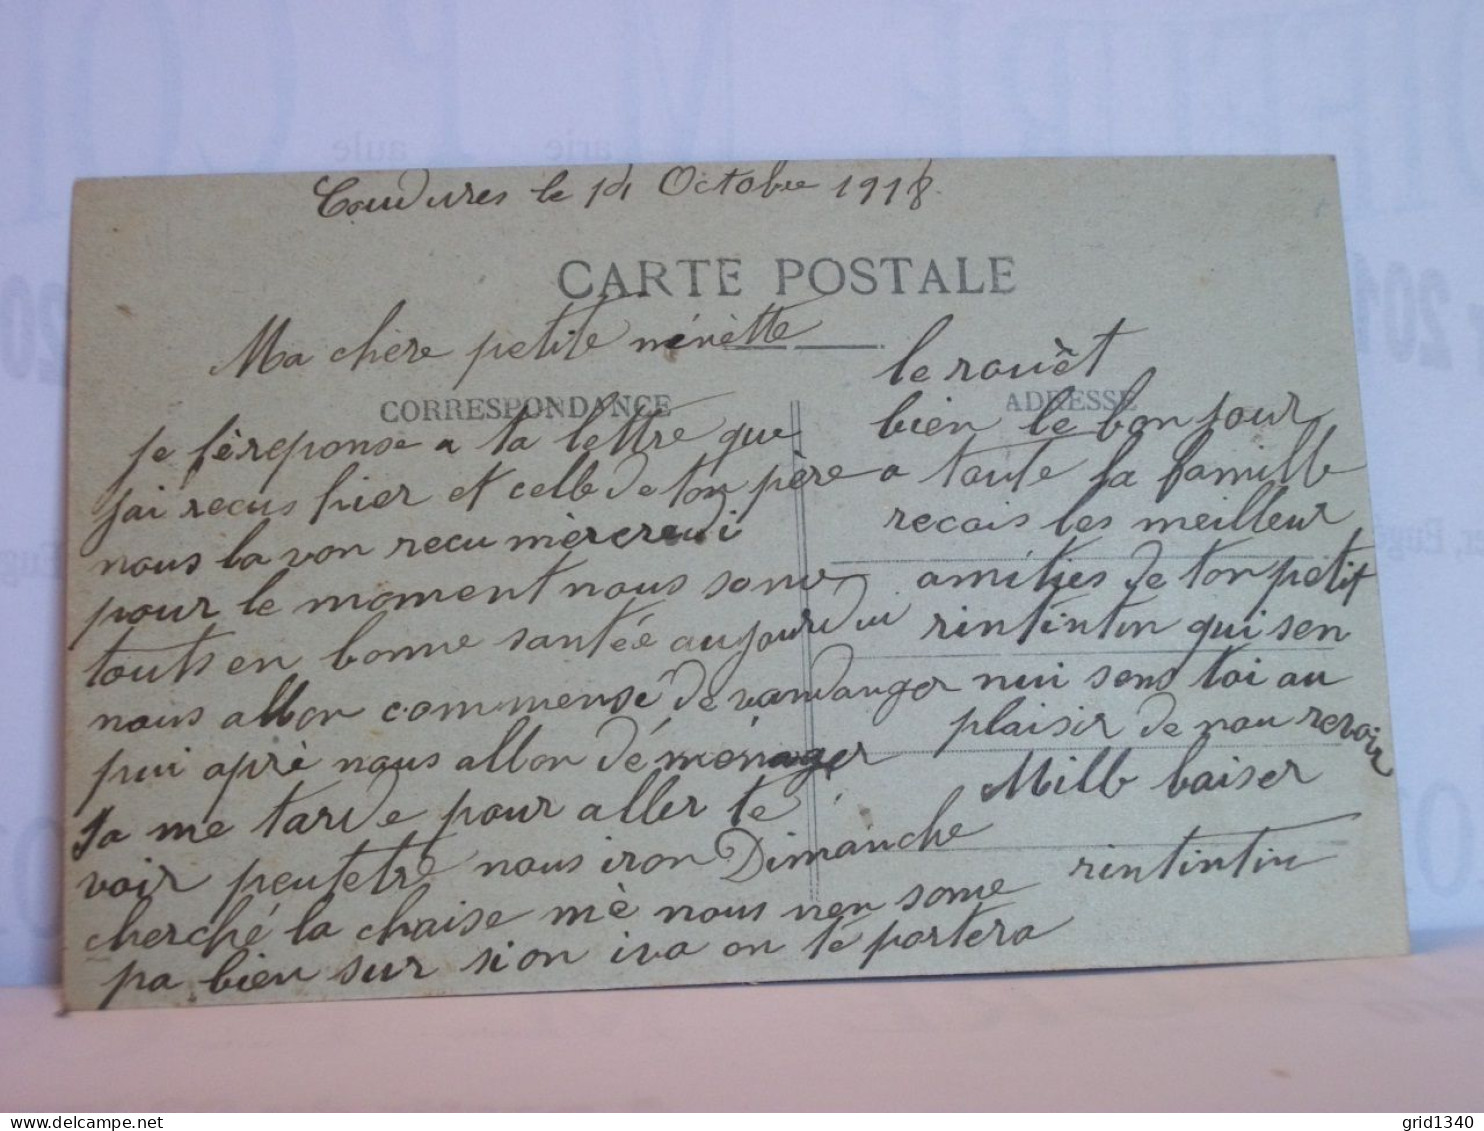 Coudures le 14 Octobre 1918.
CARTE POSTALE
Ma chère petite nénètte
CORRESPONDANCE
je fè reponse a ta lettre que
jai recus hier et celle de ton père
nous la von recu mèrcredi
pour le moment nous some
touts en bonne santée aujourdui
nous allon commensé de vandanger
pui aprè nous allon déménager
sa me tarde pour aller te
voir peutetre nous iron Dimanche
cherché la chaise mè nous nen some
pa bien sur si on iva on te portera
le rouèt
ADRESSE
bien le bonjour
a toute la famille
recois les meilleur
amitiés de ton petit
rintintin qui sen
nui sens toi au
plaisir de nou revoir
Mille baiser
rintintin
aule
arie
grid1340
delcampe.net